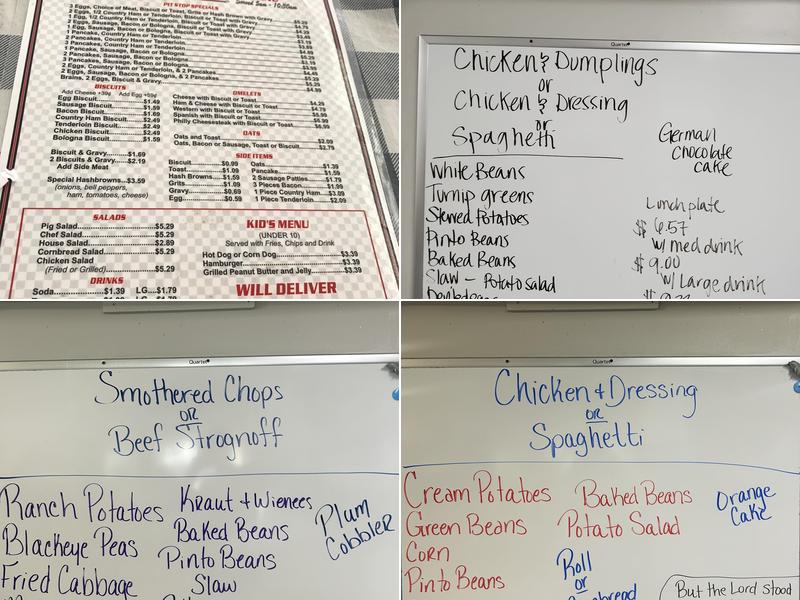 PIT STOP SPECIALS
3 Eggs, Choice of Meat, Biscuit or Toast, Grits or Hash Brown with Gravy
2 Eggs, 1/2 Country Ham or Tenderloin, Biscuit or Toast with Gravy
1 Egg, 1/2 Country Ham or Tenderloin, Biscuit or Toast with Gravy
2 Eggs, Sausage, Bacon or Bologna, Biscuit or Toast with Gravy
1 Egg, Sausage, Bacon or Bologna, Biscuit or Toast with Gravy
1 Pancake, Country Ham or Tenderloin
1 Pancake, Sausage, Bacon or Bologna
2 Pancakes, Country Ham or Tenderloin
2 Pancakes, Sausage, Bacon or Bologna
3 Pancakes, Country Ham or Tenderloin
3 Pancakes, Sausage, Bacon or Bologna
2 Eggs, Country Ham or Tenderloin, & 2 Pancakes
2 Eggs, Sausage, Bacon or Bologna, & 2 Pancakes
Brains, 2 Eggs, Biscuit & Gravy
BISCUITS
Add Cheese +39¢ Add Egg +59¢
Egg Biscuit $1.49
Sausage Biscuit $1.49
Bacon Biscuit $1.69
Country Ham Biscuit $2.49
Tenderloin Biscuit $2.49
Chicken Biscuit $2.49
Bologna Biscuit $1.59
Biscuit & Gravy $1.69
2 Biscuits & Gravy $2.19
Add Side Meat
Special Hashbrowns...$3.59
(onions, bell peppers,
ham, tomatoes, cheese)
OMELETS
Cheese with Biscuit or Toast
Ham & Cheese with Biscuit or Toast $4.29
Western with Biscuit or Toast $4.79
Spanish with Biscuit or Toast $5.99
Philly Cheesesteak with Biscuit or Toast $6.99
OATS
Oats and Toast $2.09
Oats, Bacon or Sausage, Toast or Biscuit $2.79
SIDE ITEMS
Biscuit $0.99
Toast $1.09
Hash Browns $1.59
Grits $1.09
Gravy $0.69
Egg $0.59
Oats $1.39
Pancake $1.59
2 Sausage Patties $1.79
3 Pieces Bacon $1.99
1 Piece Country Ham $3.09
1 Piece Tenderloin $2.09
SALADS
Pig Salad $5.29
Chef Salad $5.29
House Salad $2.89
Cornbread Salad $5.29
Chicken Salad
(Fried or Grilled) $5.29
DRINKS
Soda $1.39 LG $1.79
KID'S MENU
(UNDER 10)
Served with Fries, Chips and Drink
Hot Dog or Corn Dog $3.39
Hamburger $3.39
Grilled Peanut Butter and Jelly $3.39
WILL DELIVER
Quartet
Chicken & Dumplings
or
Chicken & Dressing
or
Spaghetti
White Beans
Turnip greens
Stewed Potatoes
Pinto Beans
Baked Beans
Slaw - Potato salad
German
Chocolate
cake
Lunch plate
$ 6.57
w/ med drink
$ 9.00
w/ Large drink
Quartet
Smothered Chops
OR
Beef Strognoff
Ranch Potatoes
Blackeye Peas
Fried Cabbage
Kraut + Wienees
Baked Beans
Pinto Beans
Slaw
Plum
Cobbler
Quartet
Chicken + Dressing
OR
Spaghetti
Cream Potatoes
Green Beans
Corn
Pinto Beans
Baked Beans
Potato Salad
Roll
or
Orange
Cake
But the Lord stood